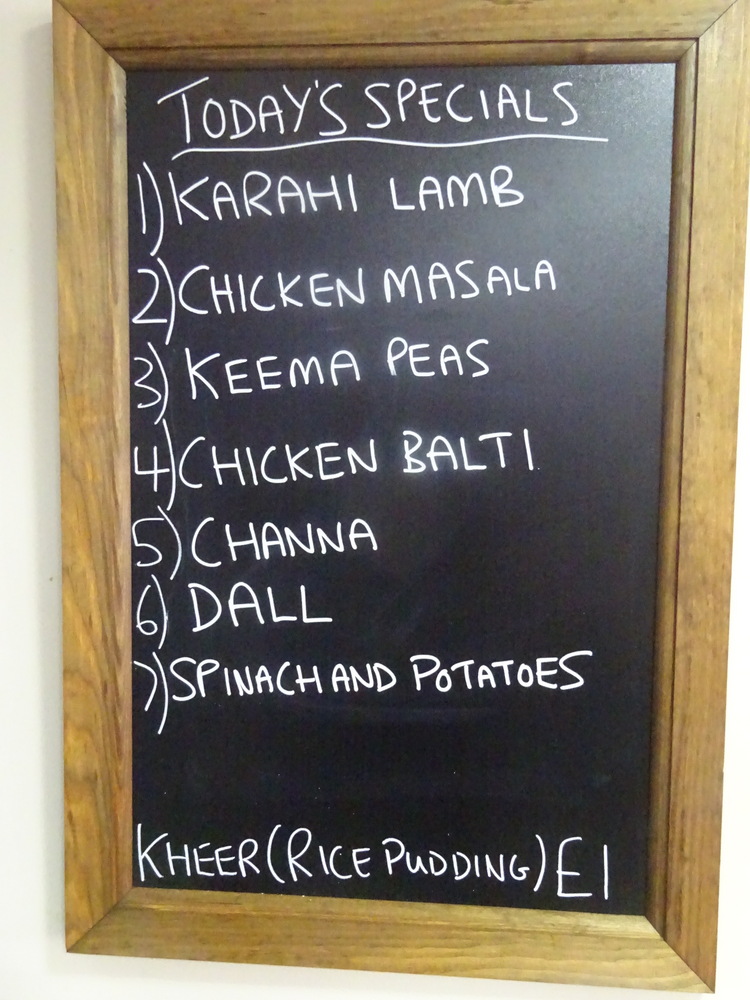 TODAY'S SPECIALS
1) KARAHI LAMB
2) CHICKEN MASALA
3) KEEMA PEAS
4) CHICKEN BALTI
5) CHANNA
6) DALL
7) SPINACH AND POTATOES
KHEER (RICE PUDDING) £1